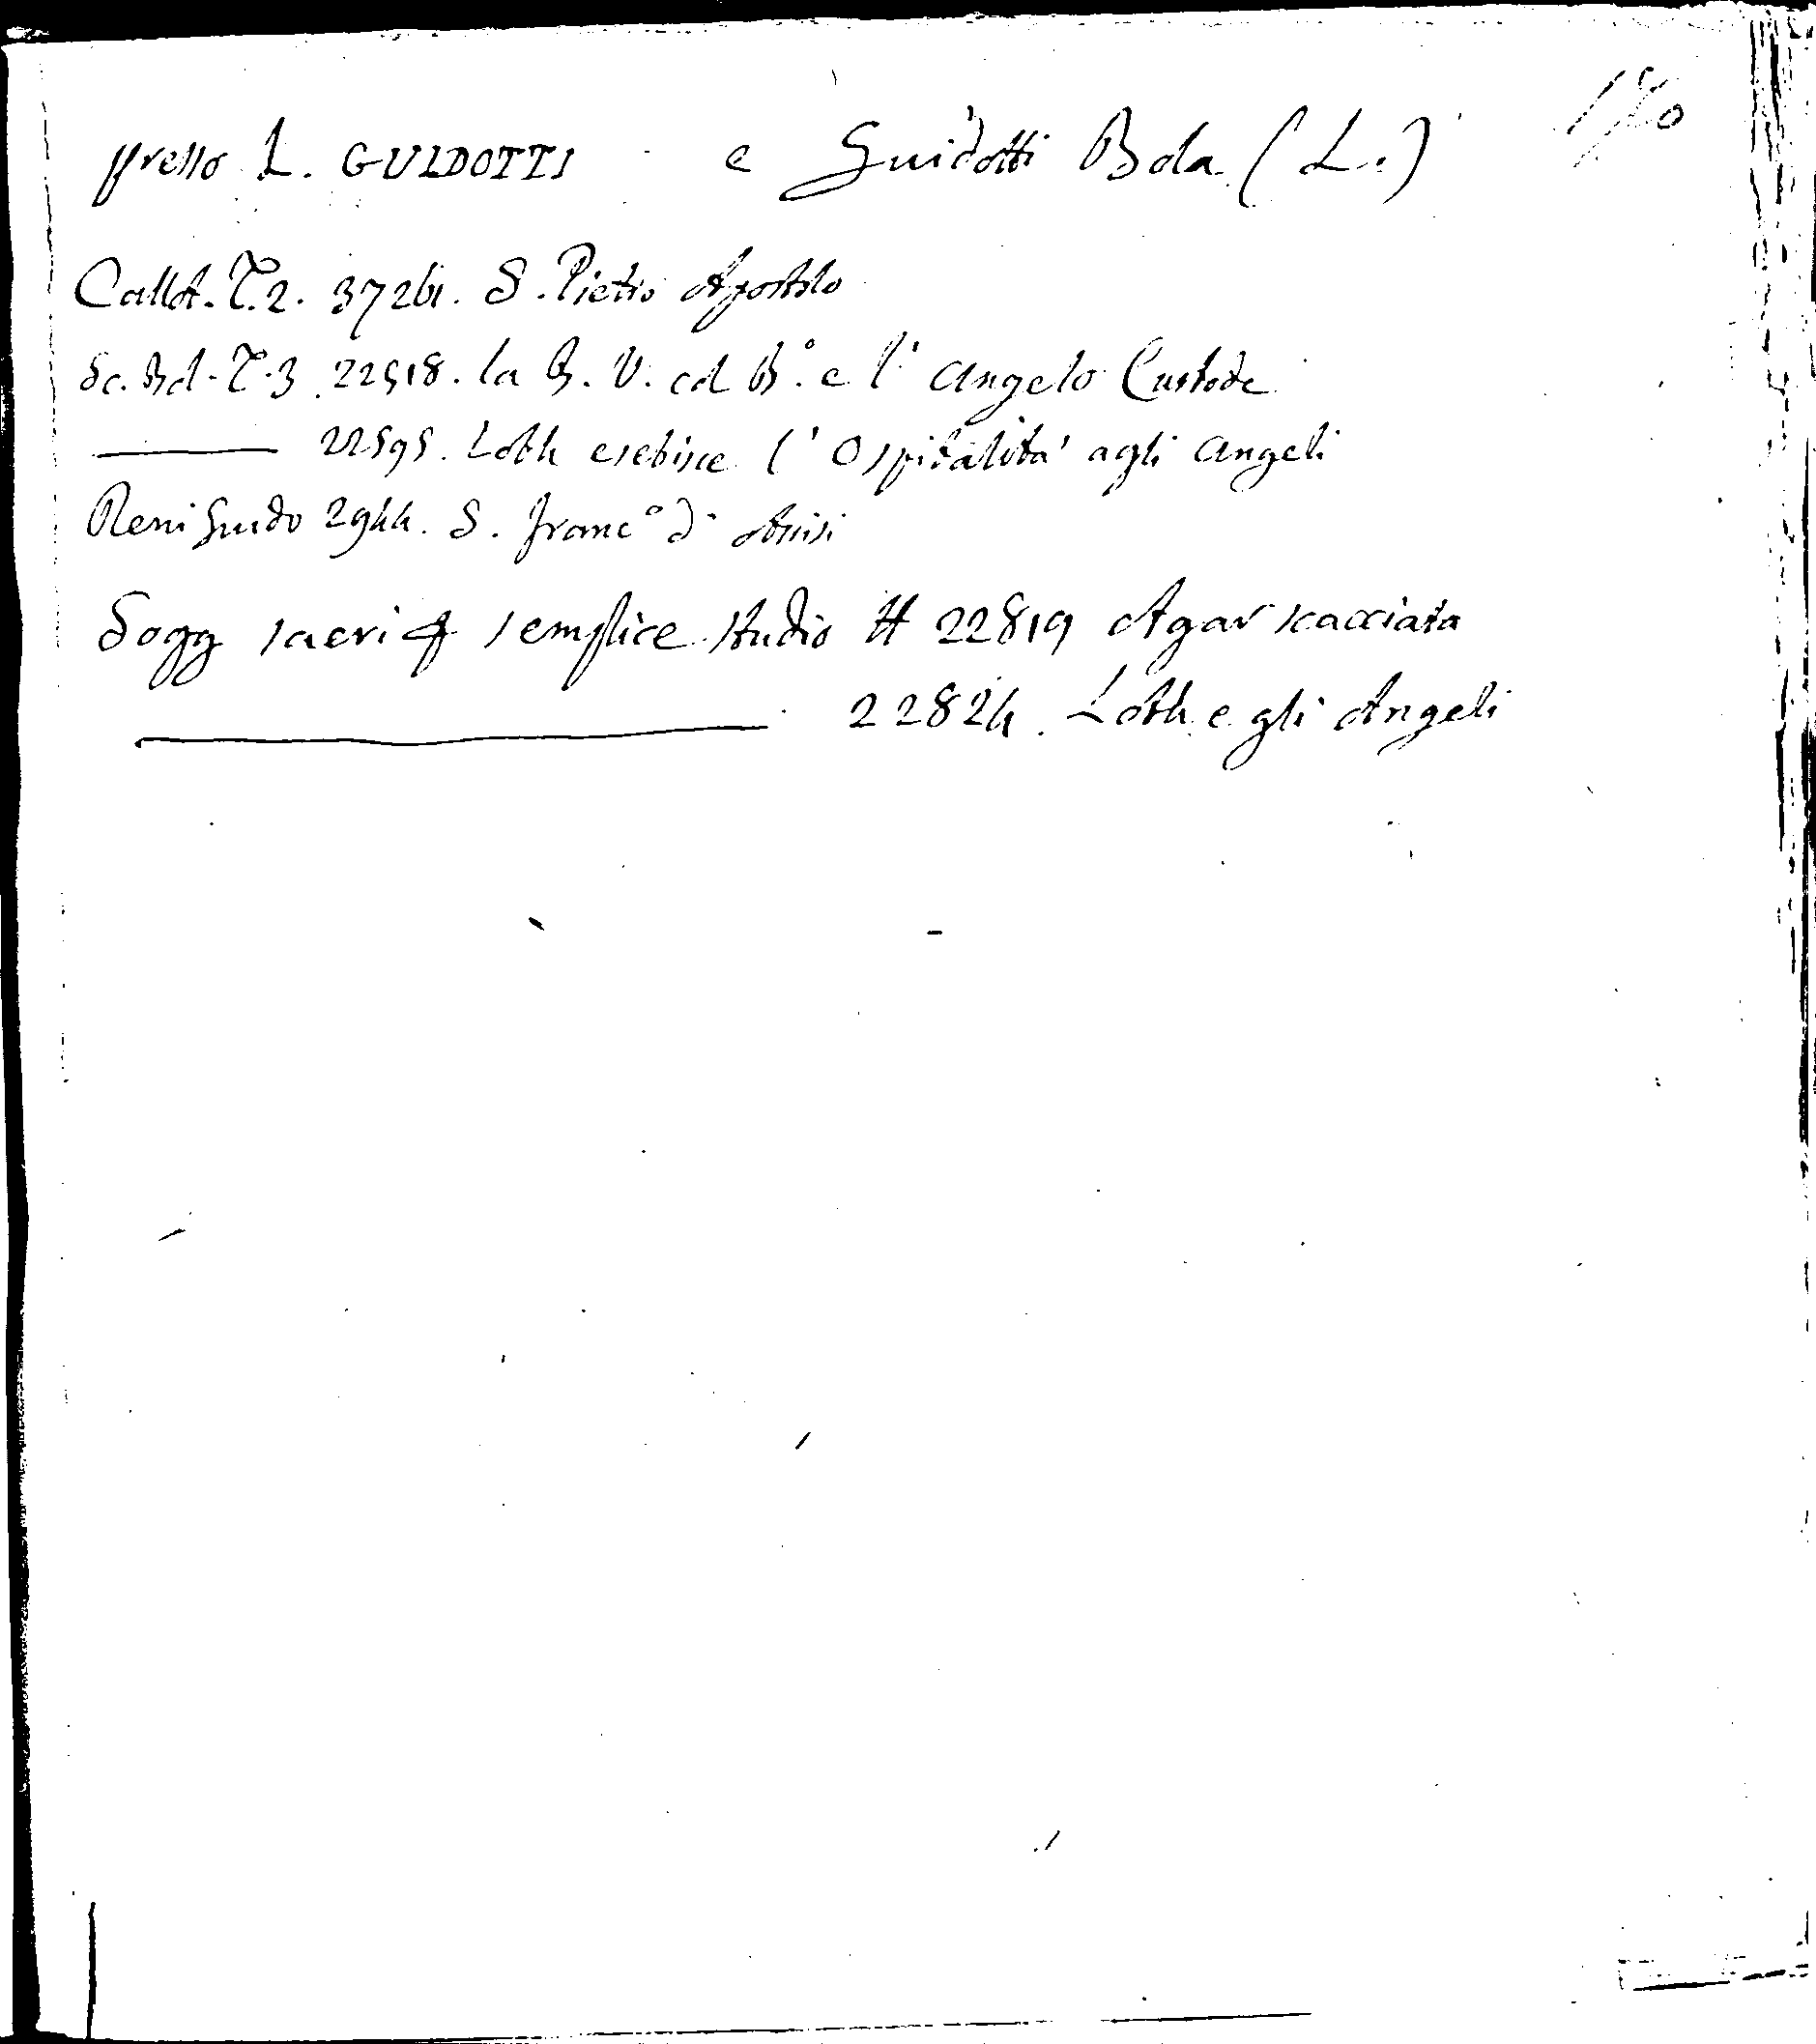 180
presso L. GUIDOTTI e Guidotti Bola (L.)
Callot. T. 2. 37261. S. Pietro Apostolo
Sc. Bol. T. 3. 22518. la B. V. col B.° e l' Angelo Custode
22595. Loth esebisce l' Ospitalita' agli Angeli
Reni Guido 2944. S. Franc° d' Assisi
Sogg sacri semplice studio 22819 Agar scacciata
22824. Loth e gli Angeli